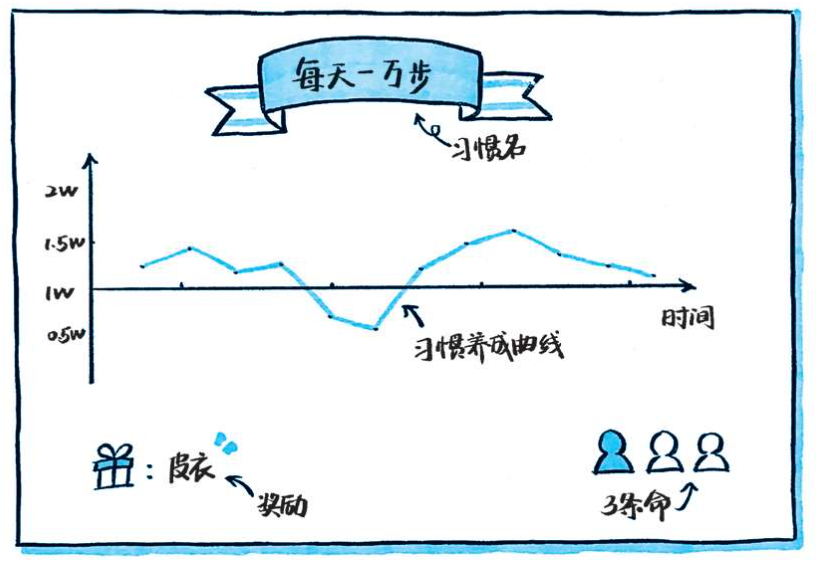 每天一万步
习惯名
2W
1.5W
1W
0.5W
时间
习惯养成曲线
：皮衣
奖励
3条命